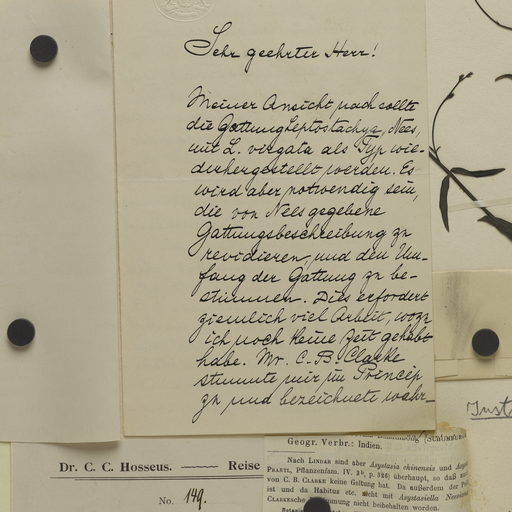 Sehr geehrter Herr!
Meiner Ansicht nach sollte
die Gattung Leptostachya, Nees,
mit L. virgata als Typ wie-
derhergestellt werden. Es
wird aber notwendig sein,
die von Nees gegebene
Gattungsbeschreibung zu
revidieren, und den Um-
fang der Gattung zu be-
stimmen. Dies erfordert
ziemlich viel Arbeit, wozu
ich noch keine Zeit gehabt
habe. Mr. C. B. Clarke
stimmte mir im Princip
zu und bezeichnete wahr-
Inst
Geogr. Verbr.: Indien.
Nach LINDAU sind aber Asystasia chinensis und
PRANTL, Pflanzenfam. IV. 3b, p. 326) überhaupt, so daß
von C. B. CLARKE keine Geltung hat. Da außerdem der
ist und da Habitus etc. nicht mit Asystasiella
CLARKEsche nicht beibehalten worden.
Dr. C. C. Hosseus. —— Reise
No. 149.